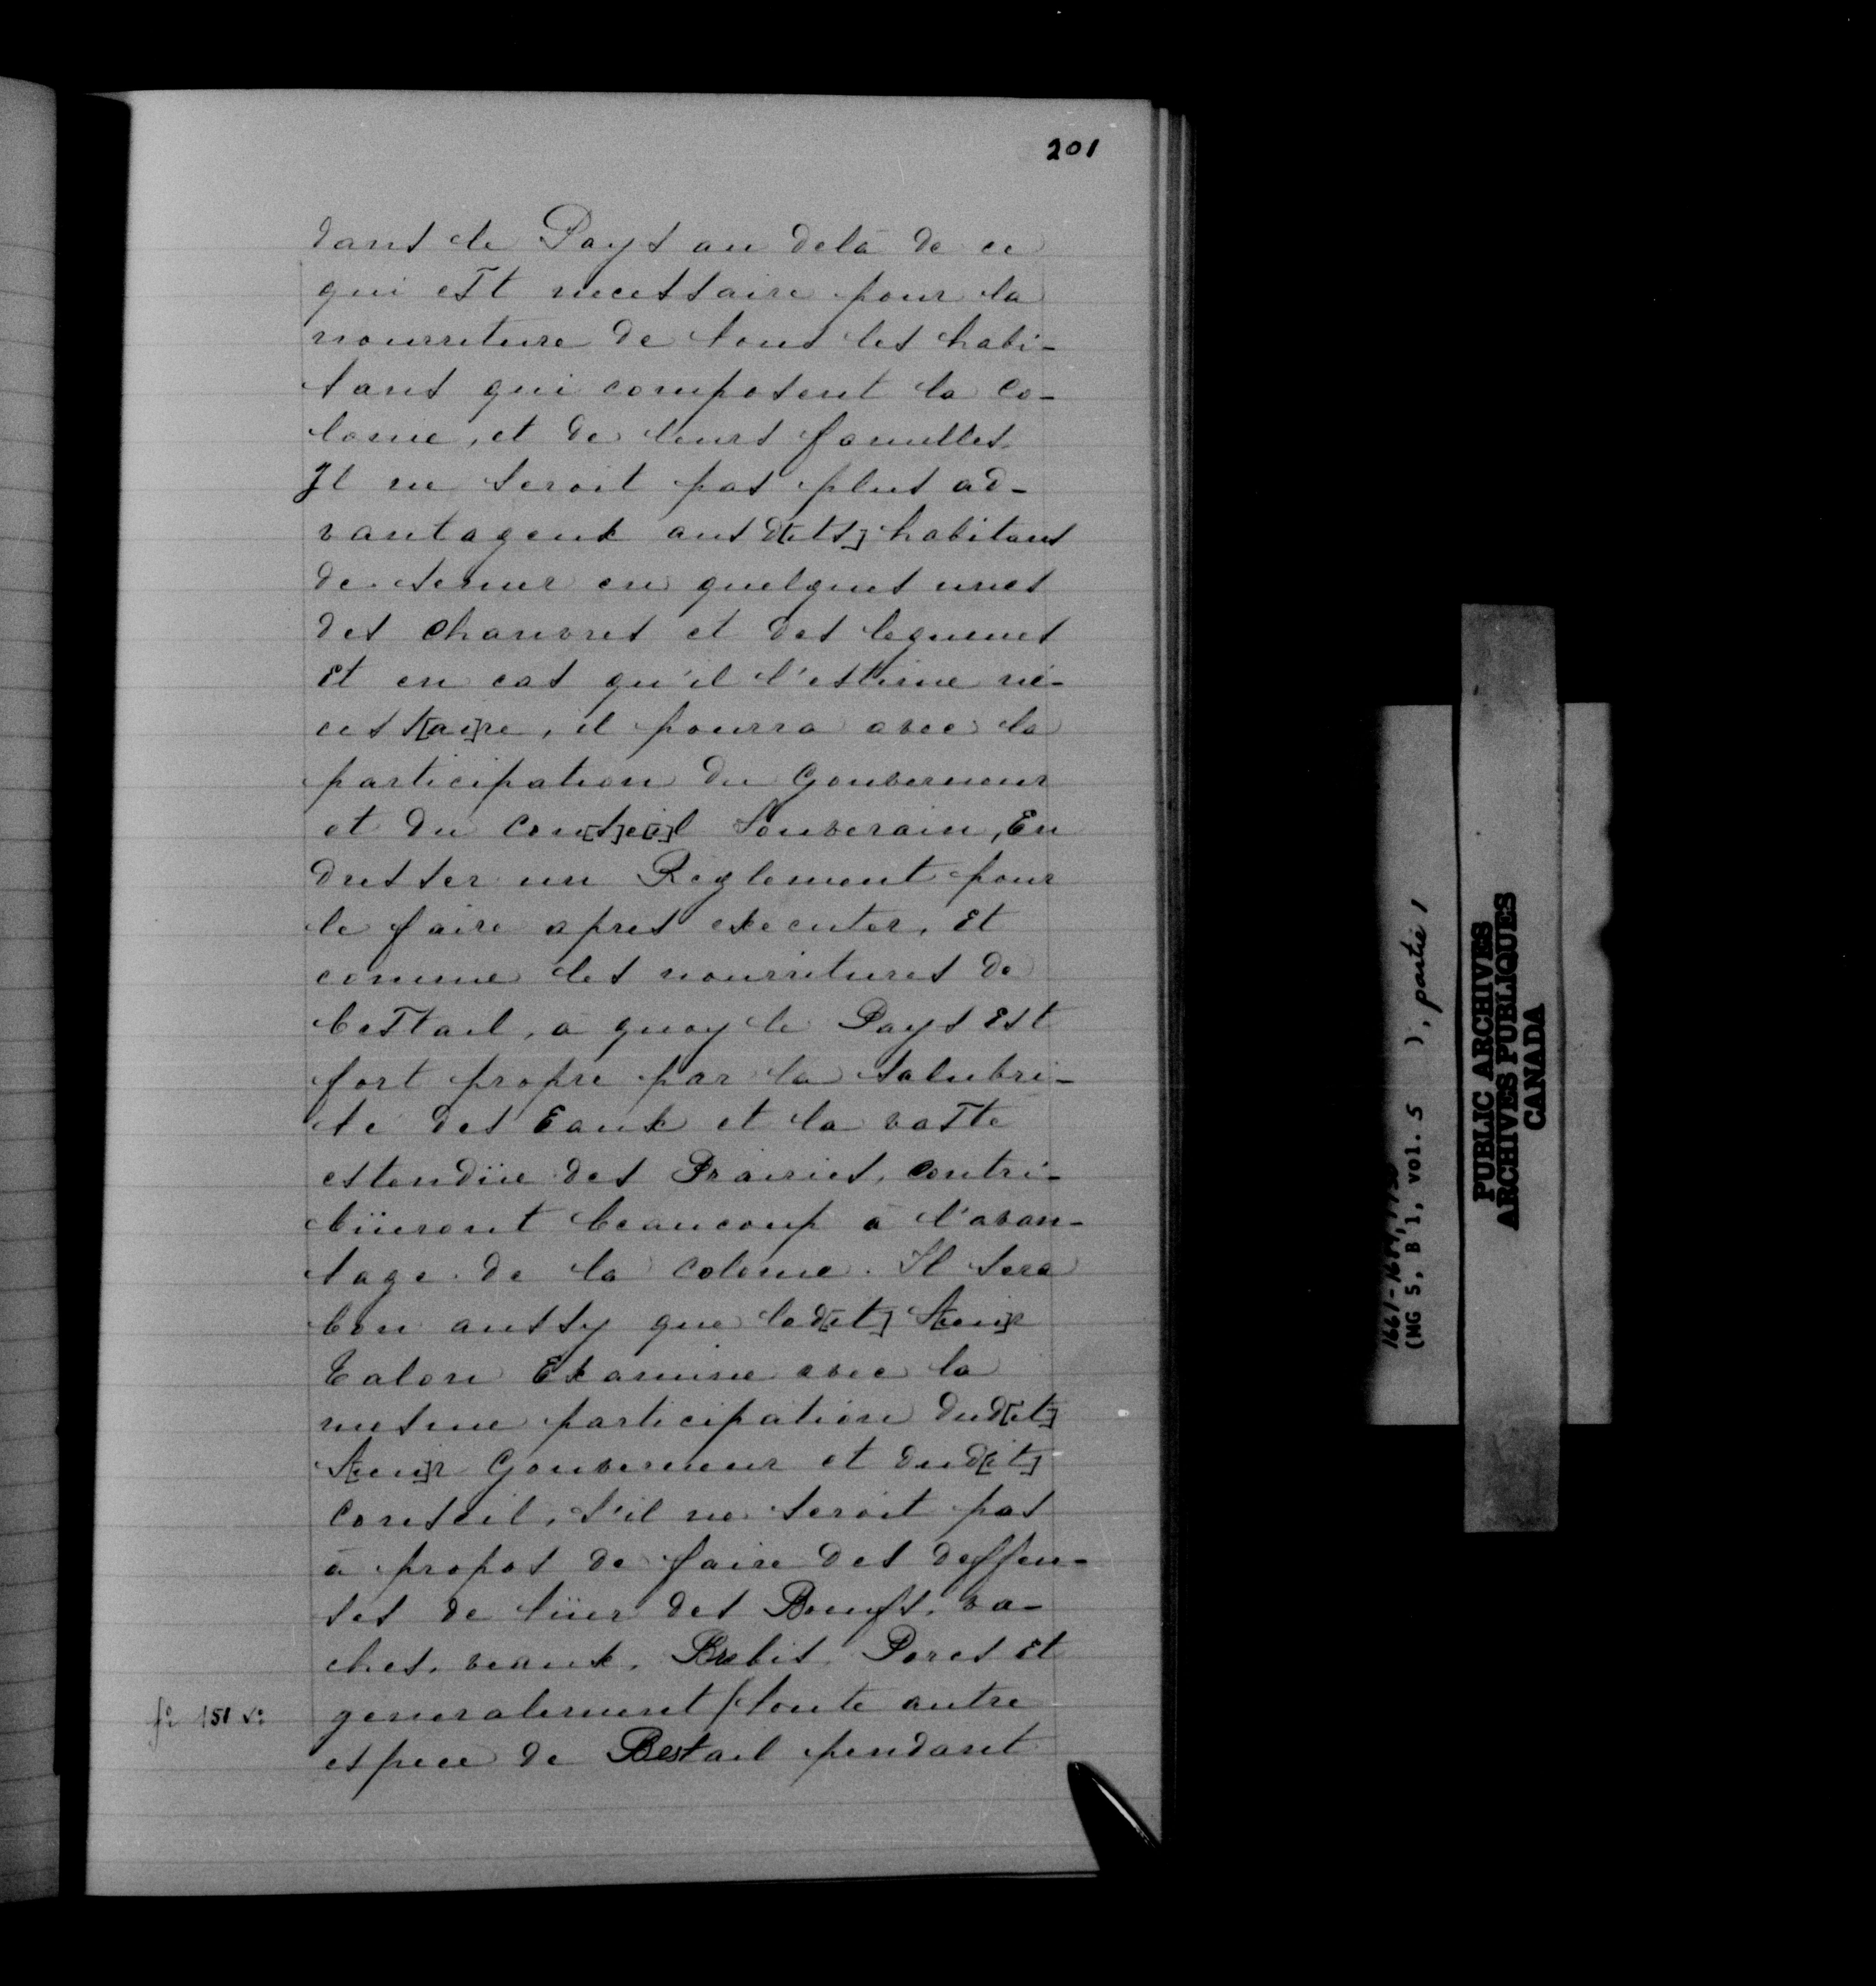 201
dans le Pays au delà de ce
qui est necessaire pour la
nourriture de tous les habi-
tans qui composent la Co-
lonie, et de leurs familles.
Il ne seroit pas plus ad-
vantageux ausd[its] habitans
de semer en quelques unes
des chanvres et des legumes
Et en cas qu'il l'estime né-
cess[ai]re, il pourra avec la
participation du Gouverneur
et du Con[s]e[i]l Souverain, En
dresser un Reglement pour
le faire apres executer, Et
comme les nourritures de
bestail, à quoy le Pays Est
fort propre par la salubri-
té des Eaux et la vaste
estendüe des Prairies, contri-
büeront beaucoup à l'avan-
tage de la Colonie. Il sera
bon aussy que led[it] S[ieu]r
Talon Examine avec la
mesme participation dud[it]
S[ieu]r Gouverneur et dud[it]
Conseil, s'il ne seroit pas
à propos de faire des deffen-
ses de tüer des Bœufs, va-
ches, veaux, Brebis, Porcs Et
fo 151 vo generalement / toute autre
espece de Bestail pendant
1661-16
(MG 5, B 1, vol. 5 ), partie 1
PUBLIC ARCHIVES
ARCHIVES PUBLIQUES
CANADA